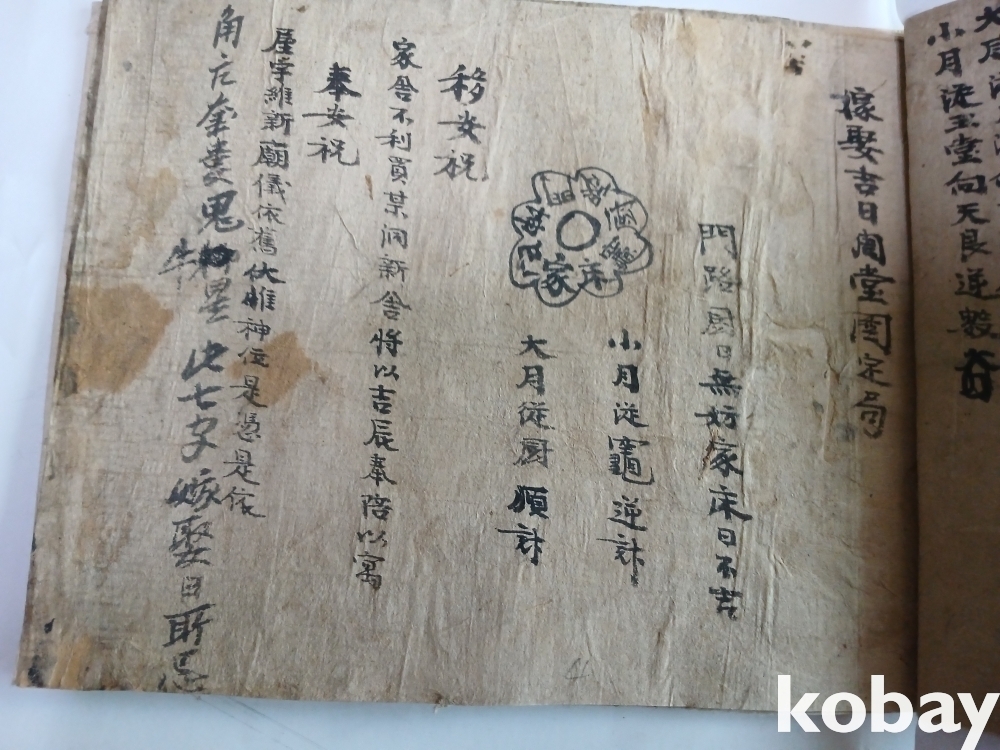 大月
小月從玉堂向天良逆數
嫁娶吉日周堂圖定局
門路厨日無妨家床日不吉
小月從竈逆計
大月從厨順計
家床
移安祝
家舍不利買某洞新舍將以吉辰奉陪以寓
奉安祝
屋宇維新廟儀依舊伏惟神位是憑是依
角亢奎婁鬼牛星此七字嫁娶日所忌
kobay